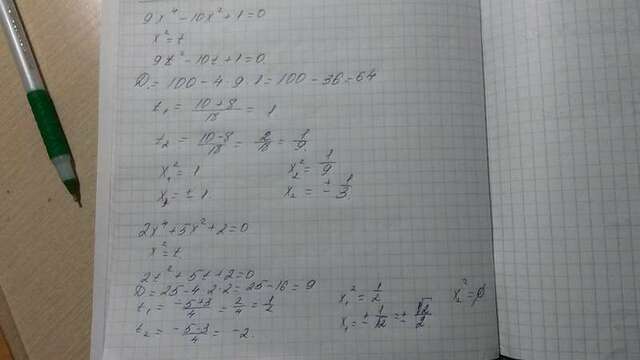 9x⁴-10x²+1=0
x²=t
9t²-10t+1=0
D=100-4·9·1=100-36=64
t₁=(10+8)/18=1
t₂=(10-8)/18=2/18=1/9
x₁²=1 x₂²=1/9
x₁=±1 x₂=±1/3
2x⁴+5x²+2=0
x²=t
2t²+5t+2=0
D=25-4·2·2=25-16=9
t₁=(-5+3)/4=2/4=1/2 x₁²=1/2 x₂²=∅
t₂=(-5-3)/4=-2 x₁=±1/√2=±√2/2